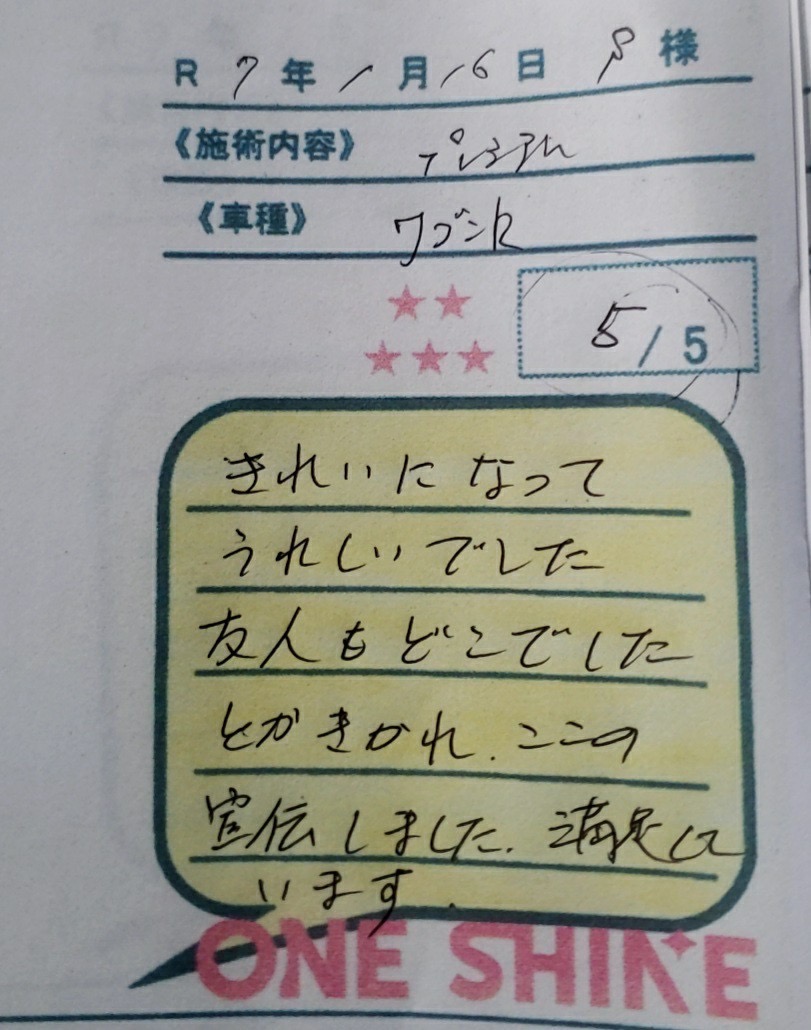 R 7年 1月16日 P様
《施術内容》 プレミアム
《車種》 ワゴンR
5/5
きれいになって
うれしいでした
友人もどこでした
とかきかれ、ここの
宣伝しました、満足して
います.
ONE SHINE